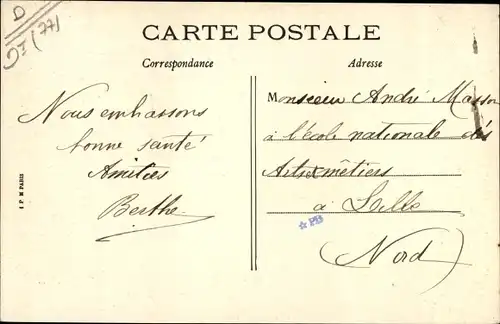 D
93 (77)
CARTE POSTALE
Correspondance
Adresse
Nous embrassons
bonne santé
Amitiés
Berthe
Monsieur André Masson
à l'école nationale des
Arts et métiers
à Lille
(Nord)
PB